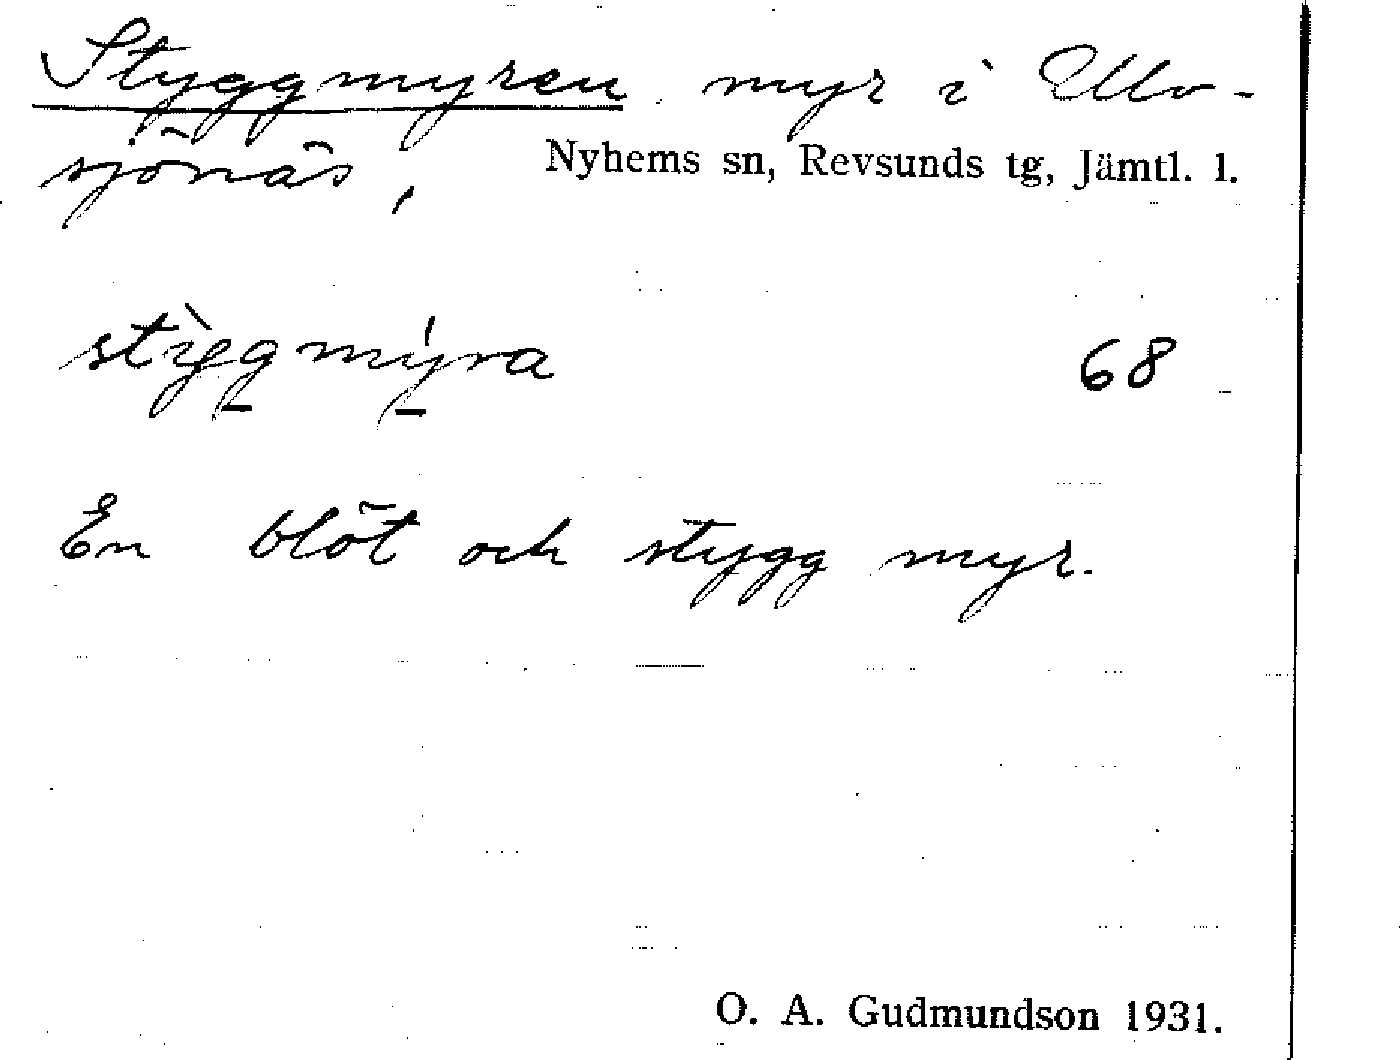 Styggmyren myr i Ulv-
sjönäs, Nyhems sn, Revsunds tg, Jämtl. l.
stỳggmýra 68
En blöt och stygg myr.
O. A. Gudmundson 1931.